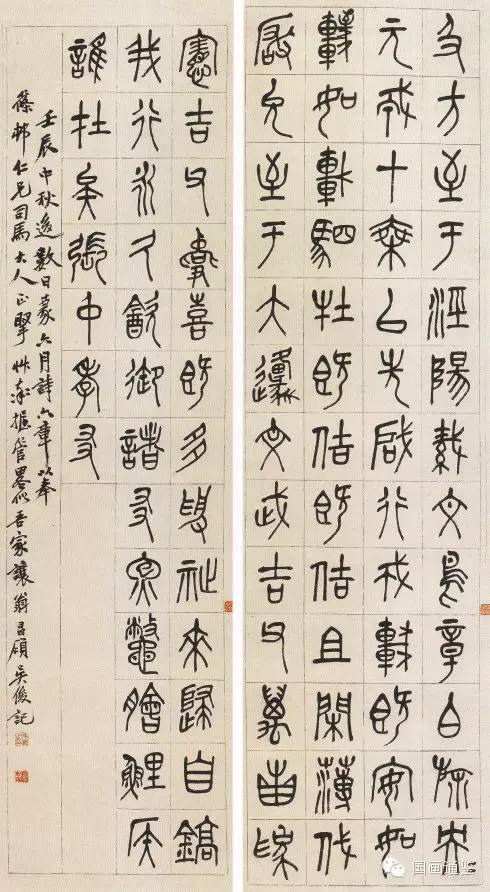 及方至于涇陽織文鳥章白旆央
元戎十乘以先啟行戎車既安如
輊如軒駟牡既佶既佶且閑薄伐
厰允至于大邍文武吉父萬邦為
憲吉父燕喜既多受祉來歸自鎬
我行永久飲御諸友炰鱉膾鯉侯
誰在矣張中孝友
壬辰中秋後數日篆六月詩六章以奉
篠邨仁兄司馬大人正 管畧似吾家讓翁昌碩吳俊記
国画通鉴